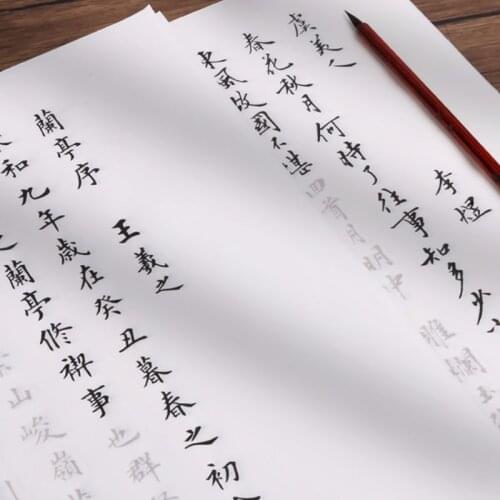 虞美人
李煜
春花秋月何時了往事知多少小
東風故國不堪回首月明中雕闌玉
蘭亭序
王羲之
和九年歲在癸丑暮春之初
之蘭亭修禊事也群
山峻嶺